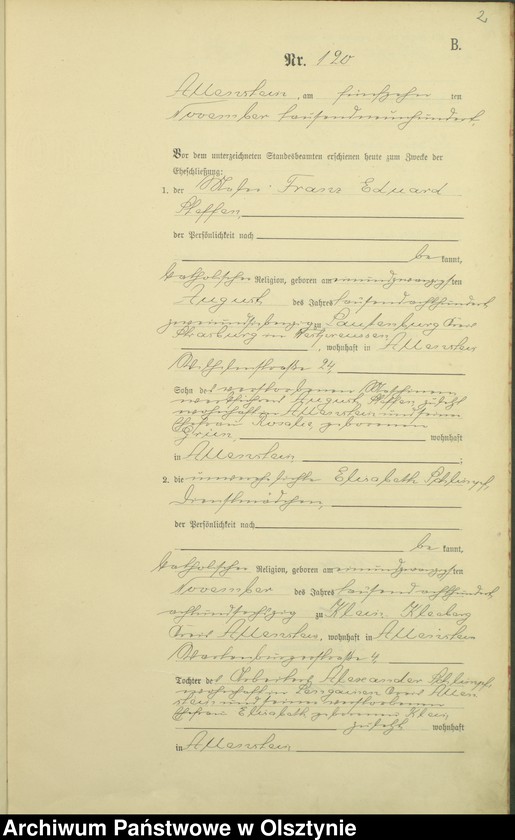 2
B.
Nr. 190
Allenstein, am fünfzehn ten
November tausendneunhundert.
Vor dem unterzeichneten Standesbeamten erschienen heute zum Zwecke der
Eheschließung:
1. der Franz Eduard
Steffen,
der Persönlichkeit nach
be kannt,
katholischer Religion, geboren am einundzwanzigsten
August des Jahres tausendachthundert
zweiundsiebenzig zu Lautenburg Kreis
Strasburg in Westpreussen
, wohnhaft in Allenstein
Wilhelmstraße 24,
Sohn des verstorbenen
August Steffen, zuletzt
wohnhaft in Allenstein und seiner
Ehefrau Rosalie geborenen
wohnhaft
in Allenstein ;
2. die unverehelichte Elisabeth Schlimpf,
Dienstmädchen,
der Persönlichkeit nach
be kannt,
katholischer Religion, geboren am einundzwanzigsten
November des Jahres tausendachthundert
achtundsechszig zu Klein Kleeberg
Kreis Allenstein, wohnhaft in Allenstein
Wartenburgerstraße 4,
Tochter des Alexander Schlimpf,
wohnhaft in Kreis Allen
stein und seiner verstorbenen
Ehefrau Elisabeth geborenen Klein,
zuletzt wohnhaft
in Allenstein
Archiwum Państwowe w Olsztynie